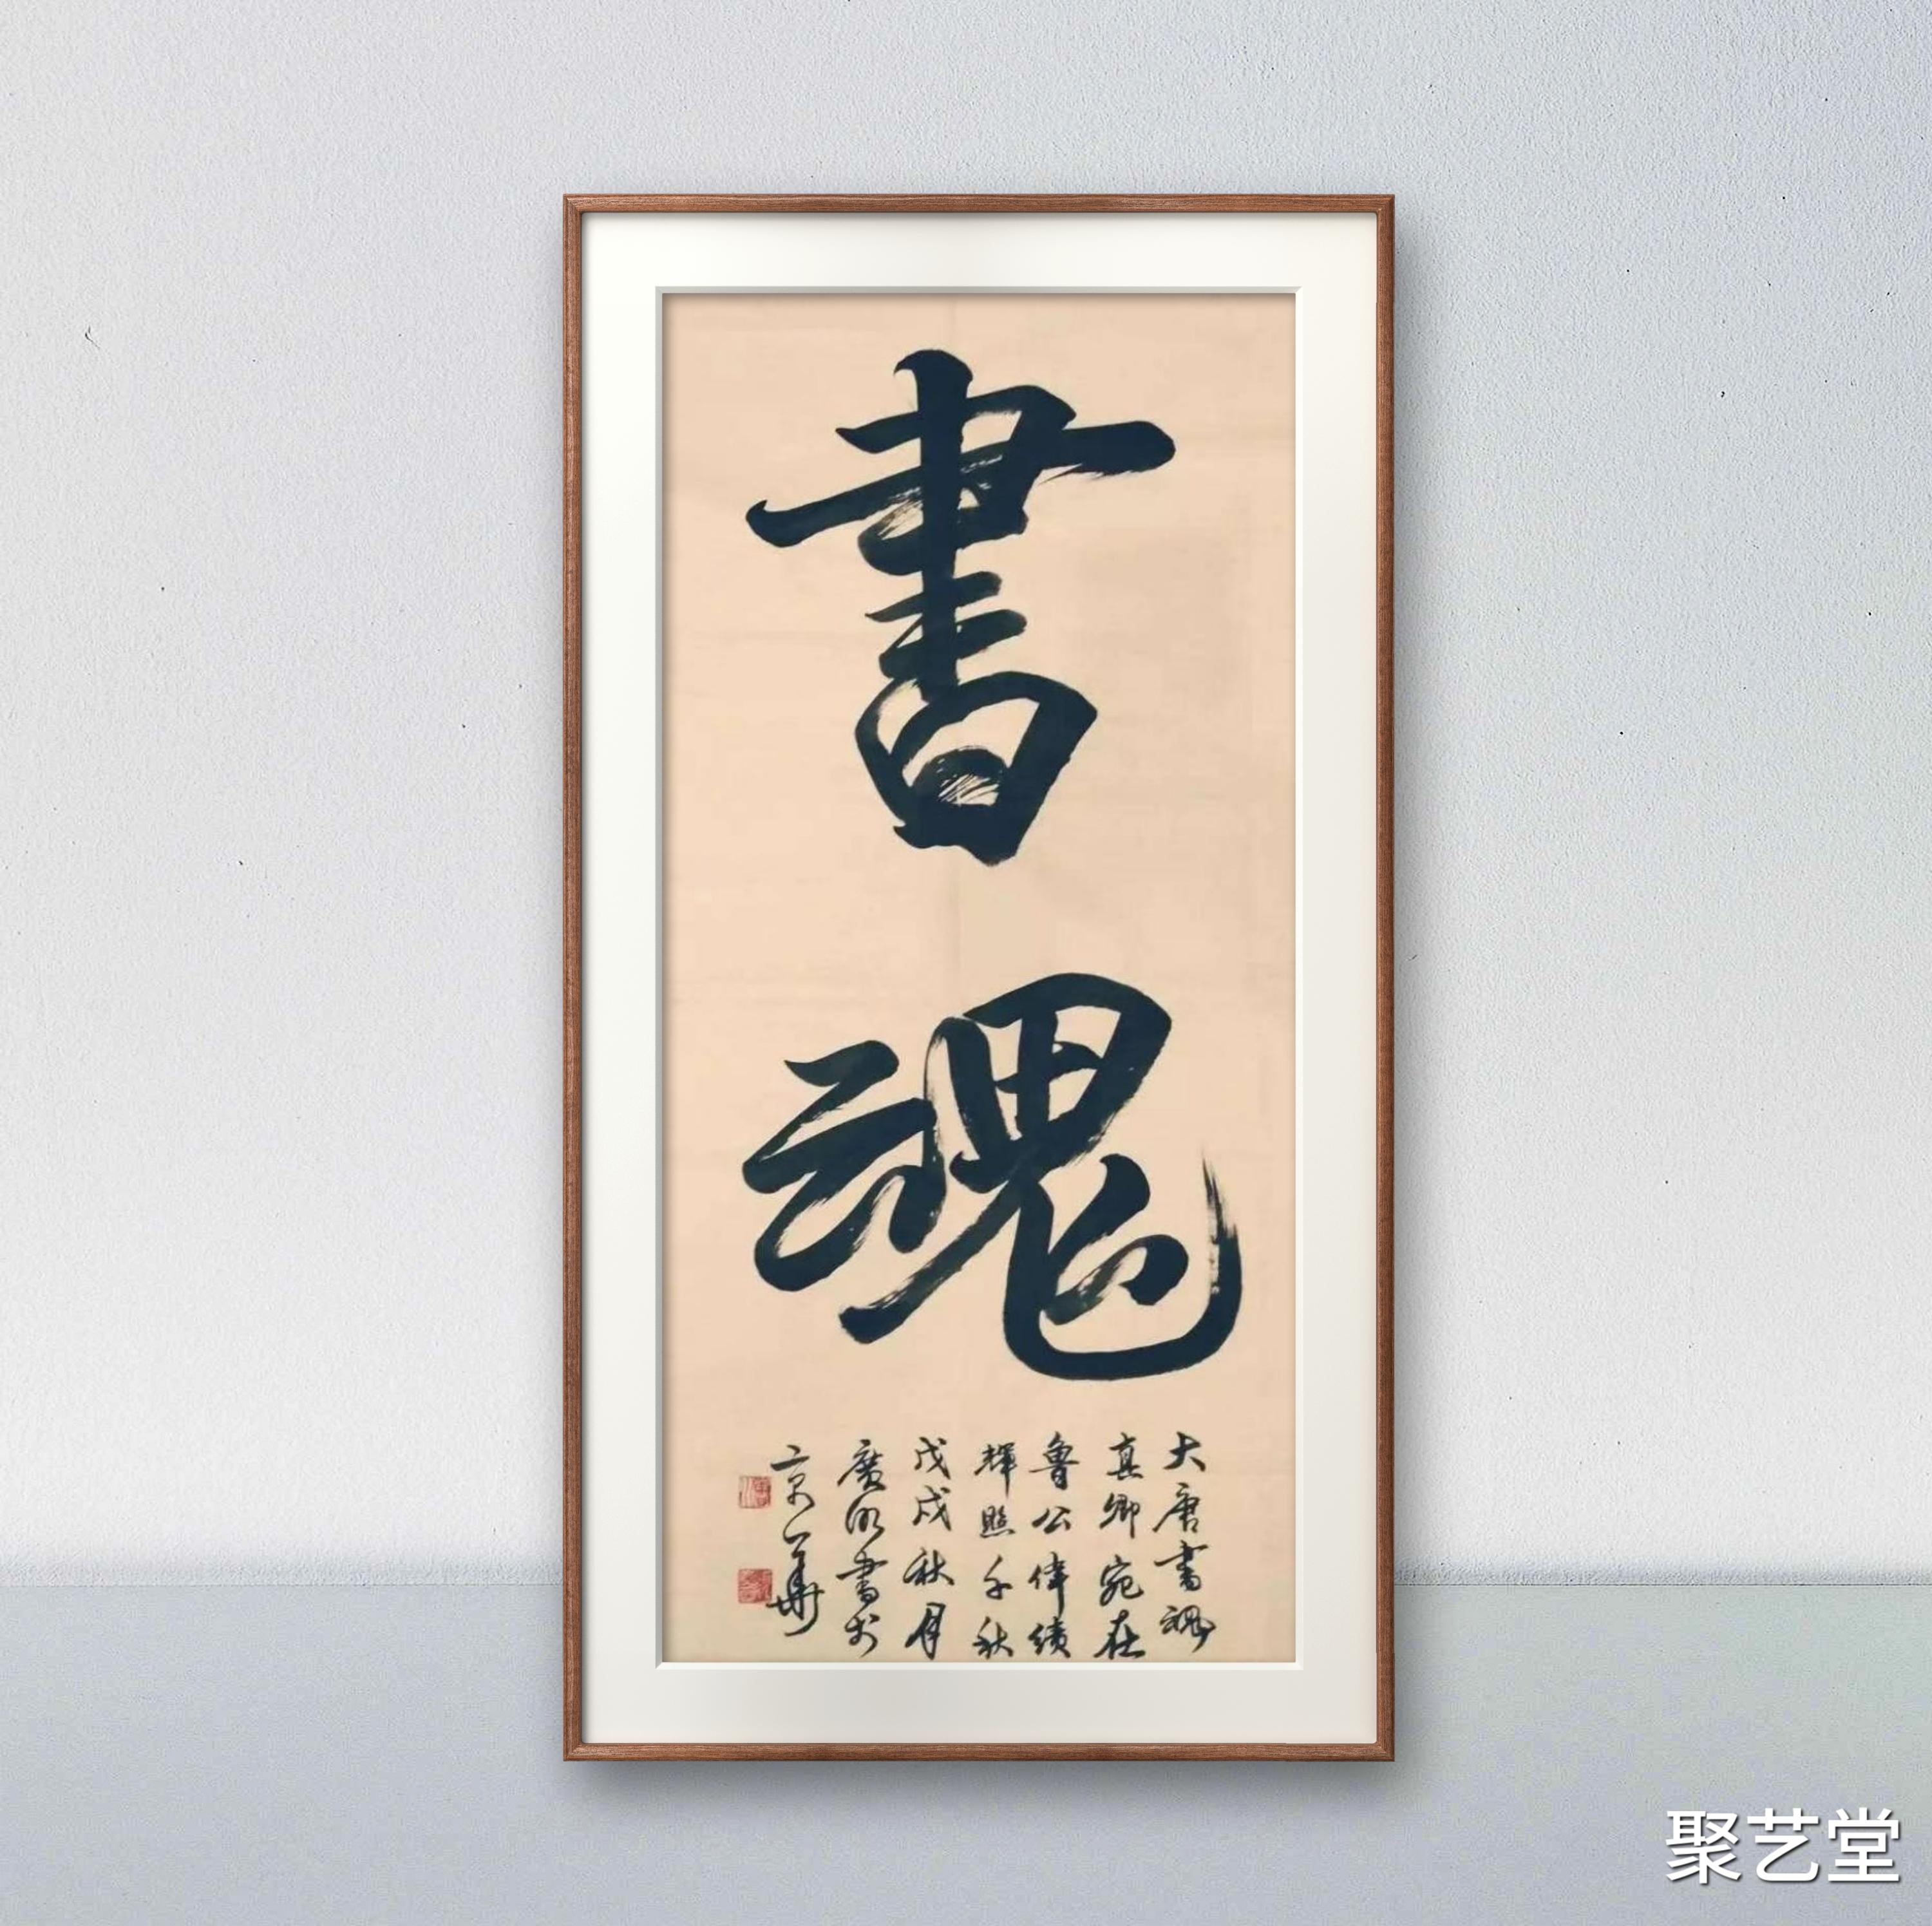 書魂
大唐書魂
真卿宛在
魯公偉績
輝照千秋
戊戌秋月
廣俊書於
京華
聚艺堂